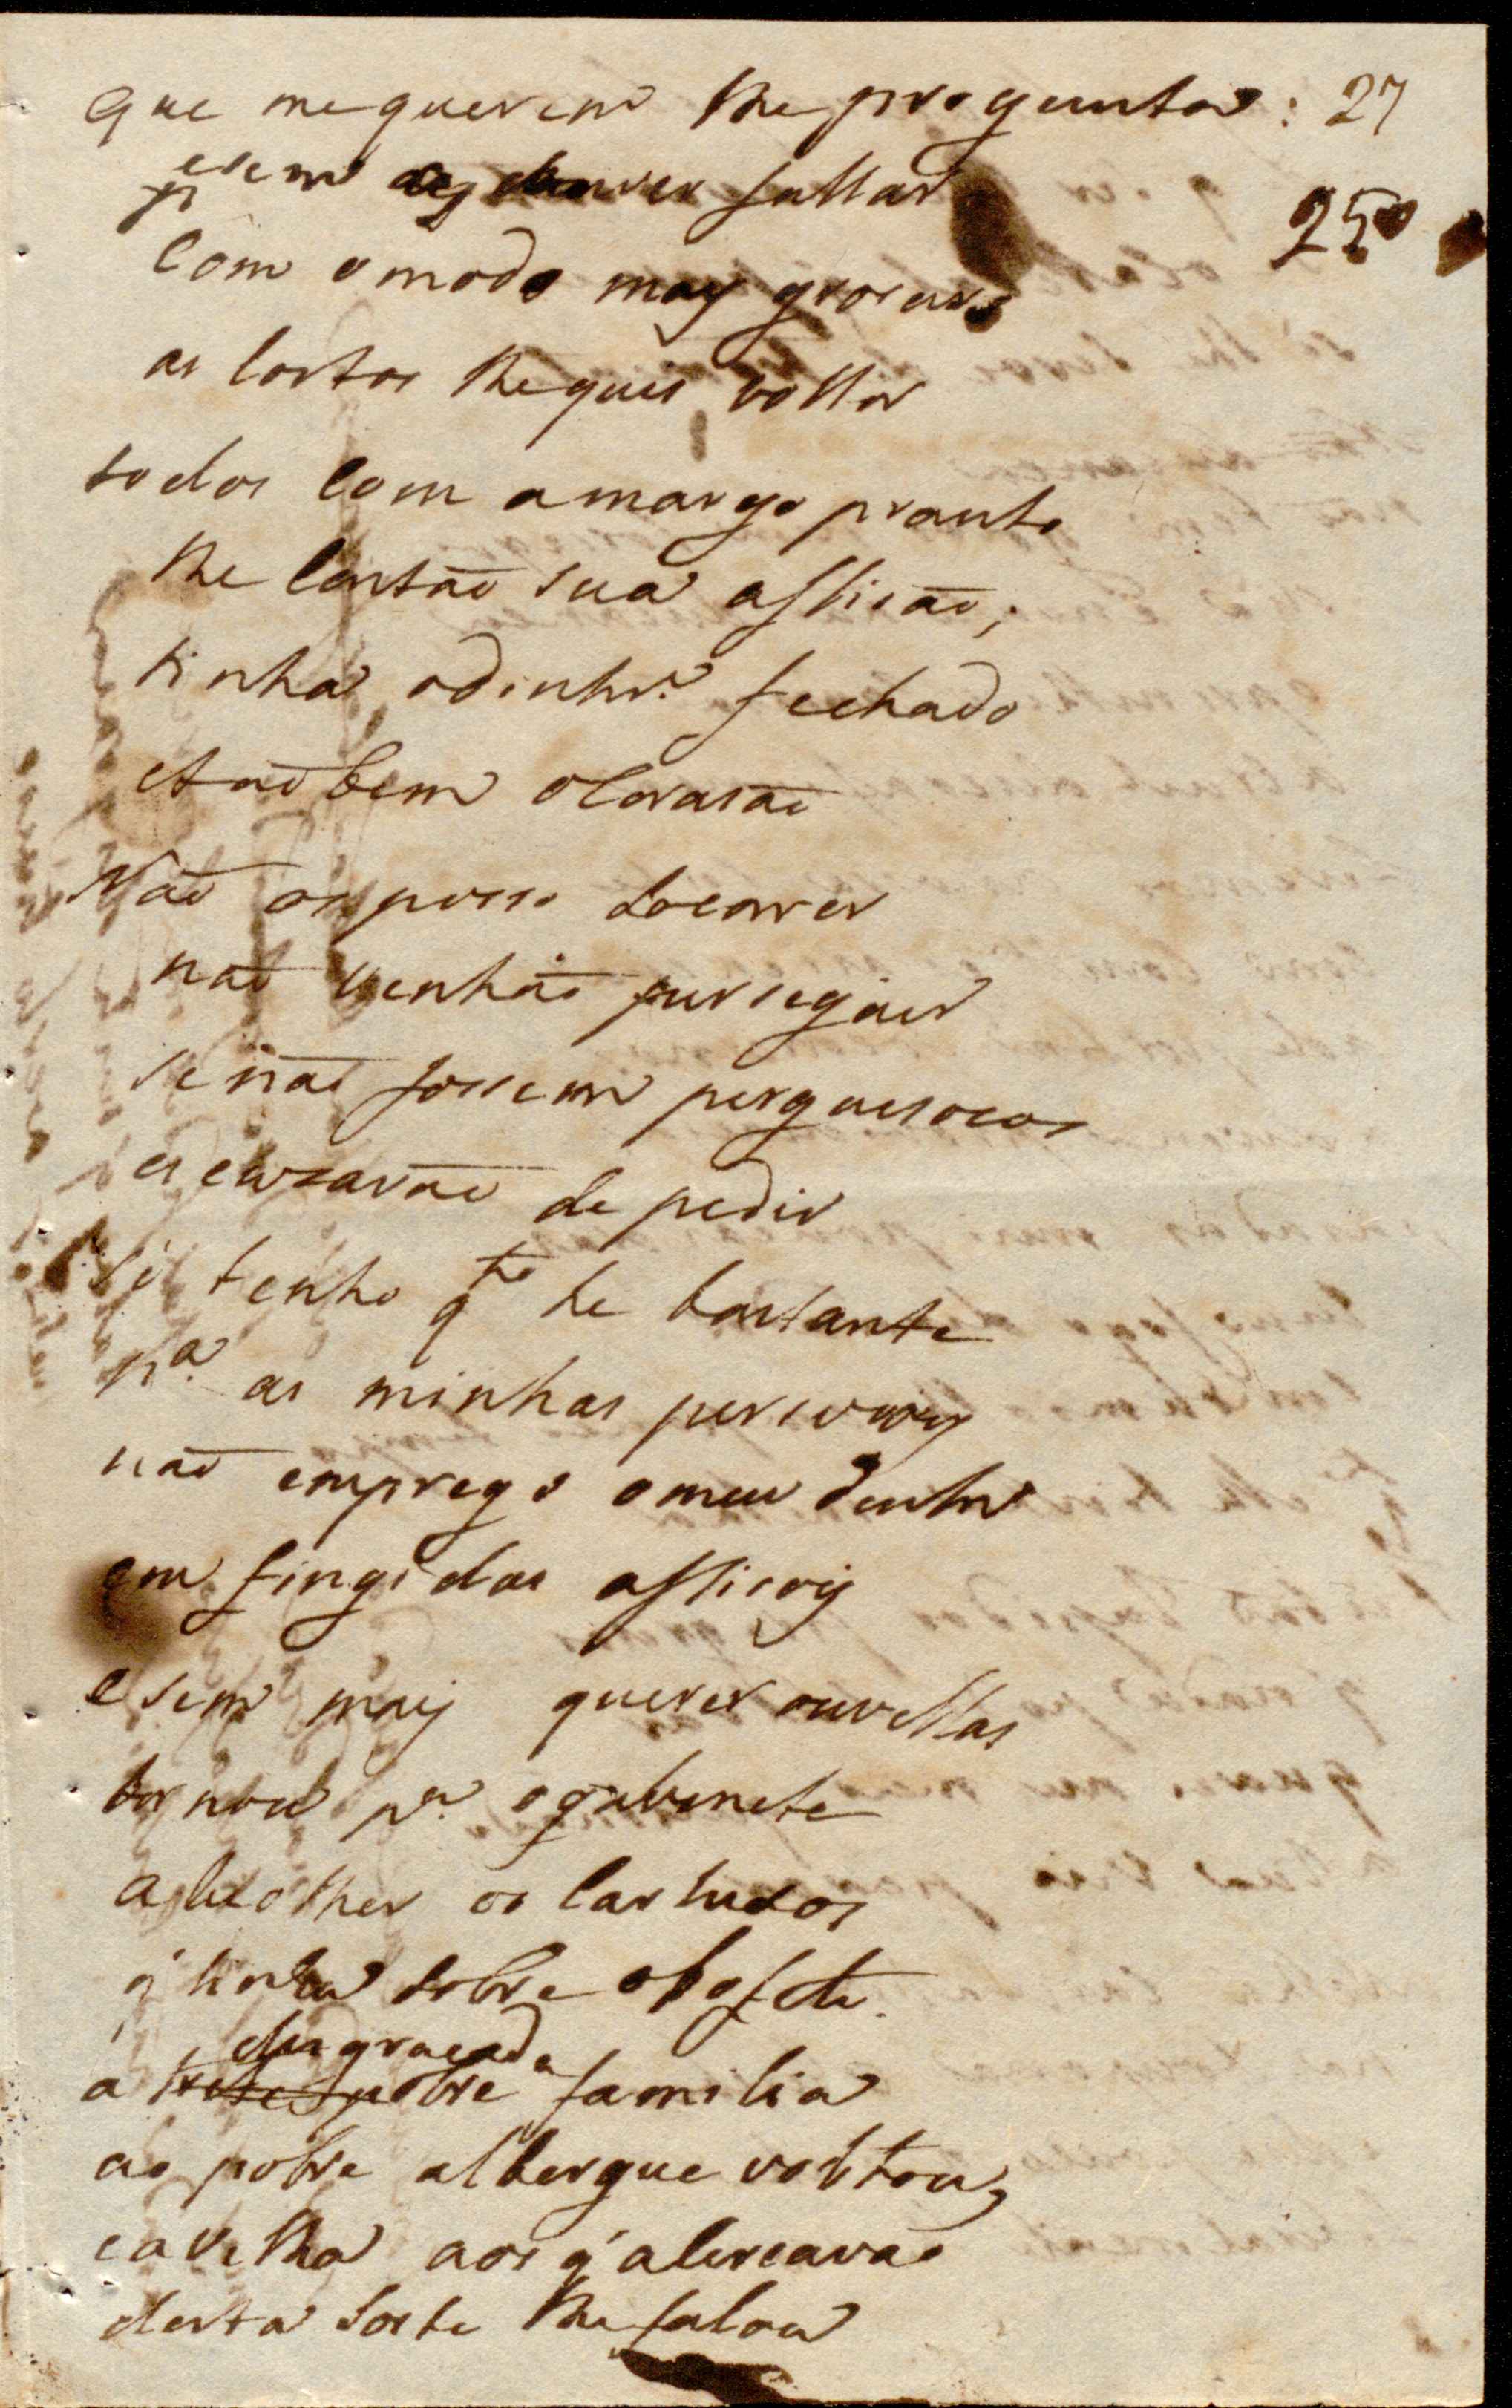 que me querem lhe progunta: 27
esem os deixar fallar 25
Com o modo mays groseiro
as Costas lhe quis voltar
todos Com amargo pranto
lhe Contaõ sua aflicaõ;
tinha odinhrº fechado
etaobem oCorasaõ
Naõ os posso Socorrer
naõ venhaõ persiguir
senaõ fossem perguisocos
escuzavaõ de pedir
Só tenho qto he bastante
pª as minhas persuoys
naõ emprego o meu dinhrº
em fingidas aflicoys
esem mays querer ouvillas
tornou pª ogabinete
a Recolher os Cartuxos
q' tinha sobre obofete.
desgracada
a triste pobre familia
ao pobre albergue voltou,
eavelha aos q' aCercavaõ
desta sorte lhe falou